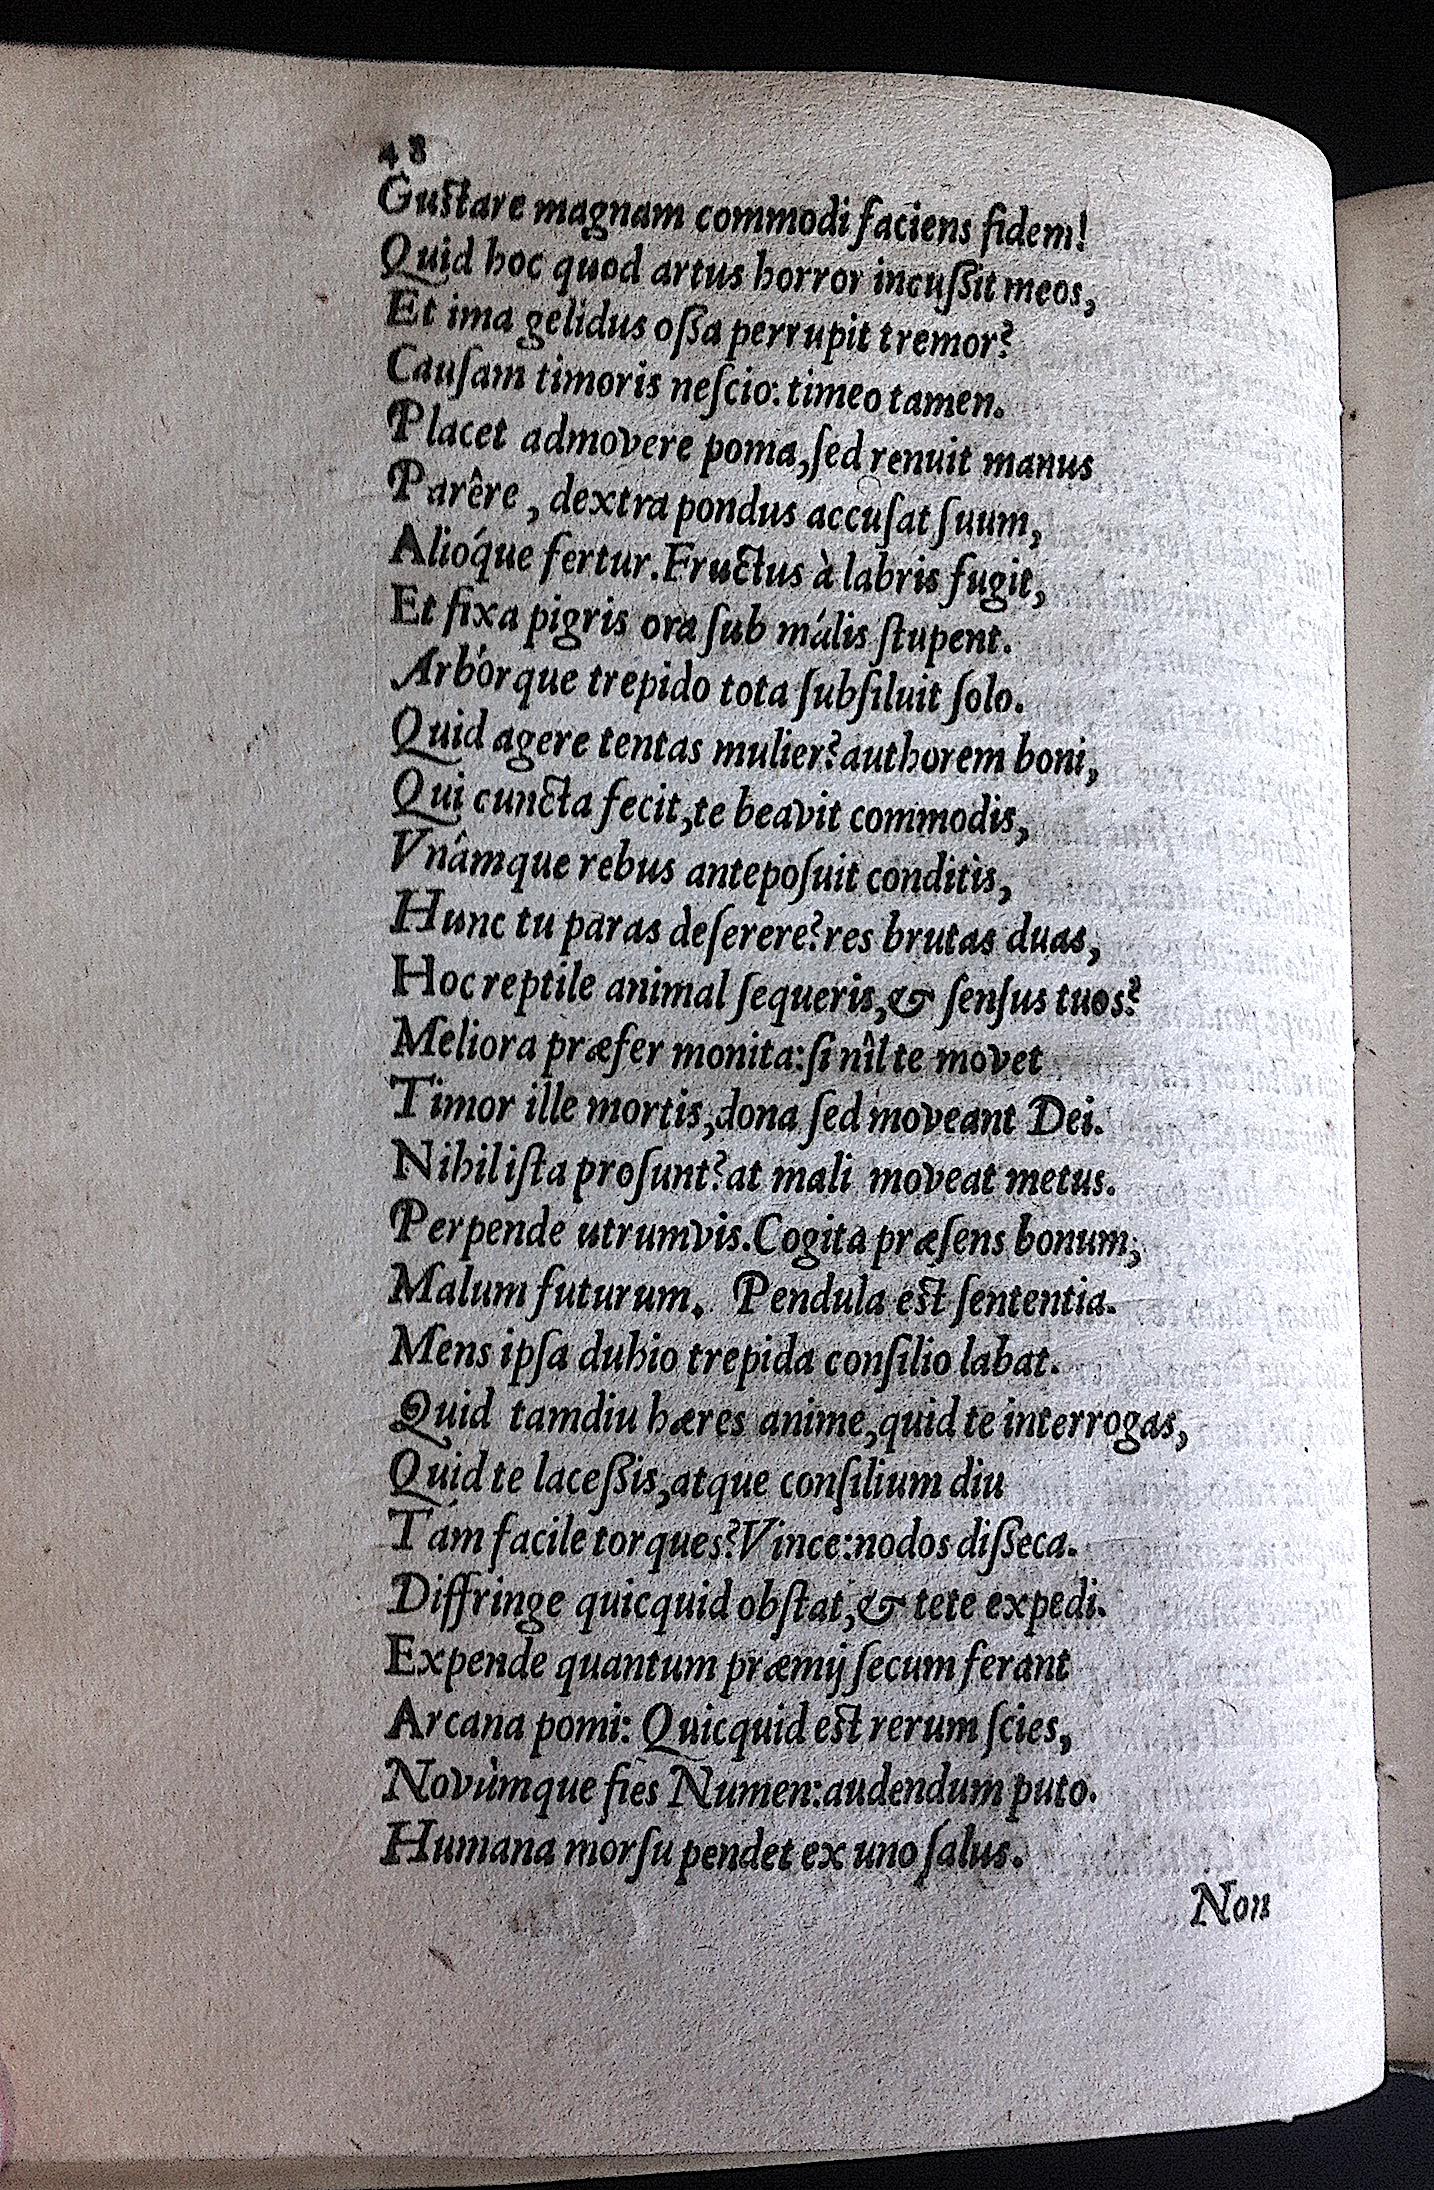 48
Gustare magnam commodi faciens fidem!
Quid hoc quod artus horror incuſsit meos,
Et ima gelidus oſsa perrupit tremor?
Cauſam timoris neſcio: timeo tamen.
Placet admovere poma, ſed renuit manus
Parêre, dextra pondus accuſat ſuum,
Alióque fertur. Fructus à labris fugit,
Et fixa pigris ora ſub mális ſtupent.
Arbórque trepido tota ſubſiluit ſolo.
Quid agere tentas mulier? authorem boni,
Qui cuncta fecit, te beavit commodis,
Vnámque rebus antepoſuit conditis,
Hunc tu paras deſerere? res brutas duas,
Hoc reptile animal ſequeris, & ſenſus tuos?
Meliora præfer monita: ſi nîl te movet
Timor ille mortis, dona ſed moveant Dei.
Nihil iſta proſunt? at mali moveat metus.
Perpende utrumvis. Cogita præſens bonum,
Malum futurum. Pendula est ſententia.
Mens ipſa dubio trepida conſilio labat.
Quid tamdiu hæres anime, quid te interrogas,
Quid te laceſsis, atque conſilium diu
Tám facile torques? Vince: nodos diſseca.
Diffringe quicquid obſtat, & tete expedi.
Expende quantum præmij ſecum ferant
Arcana pomi: Quicquid est rerum ſcies,
Novùmque fies Numen: audendum puto.
Humana morſu pendet ex uno ſalus.
Non